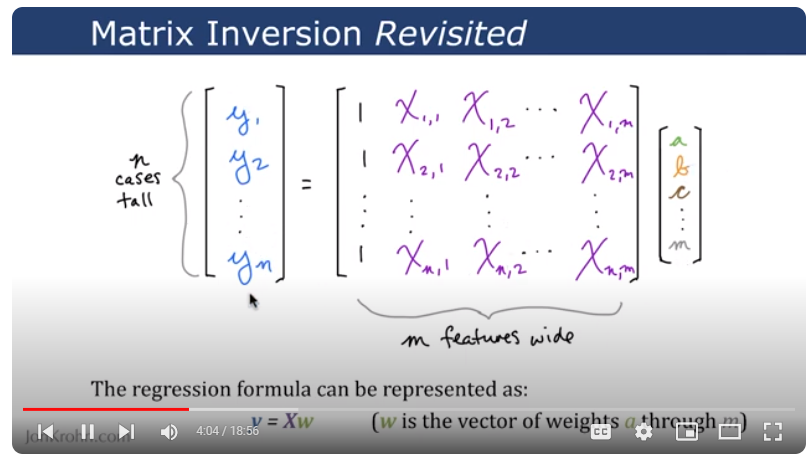 Matrix Inversion Revisited
n cases tall
[y₁ y₂ ⋮ yₙ] = [1 X₁,₁ X₁,₂ ⋯ X₁,ₘ
1 X₂,₁ X₂,₂ ⋯ X₂,ₘ
⋮ ⋮ ⋮ ⋮
1 Xₙ,₁ Xₙ,₂ ⋯ Xₙ,ₘ] [a b c ⋮ m]
m features wide
The regression formula can be represented as:
y = Xw (w is the vector of weights a through m)
JonKrohn.com
4:04 / 18:56
CC